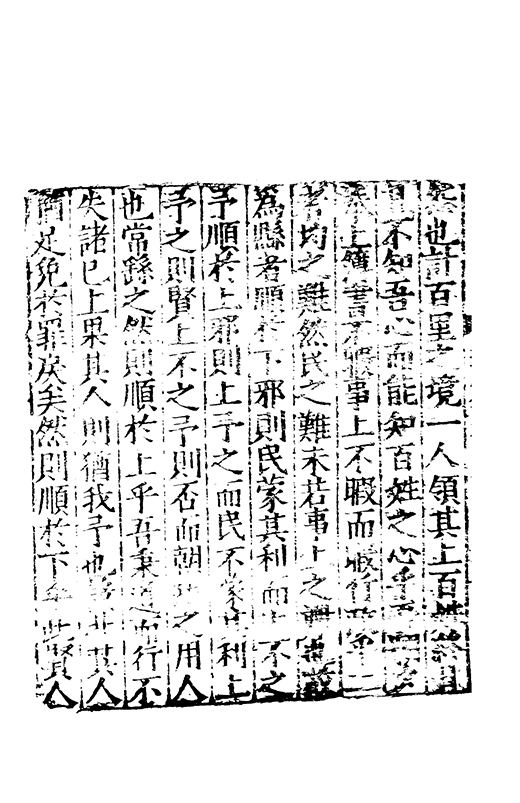 也計百里之境一人領其上百
不知吾心而能知百姓之心乎
上簿書不暇事上不暇而暇行
均之難然民之難未若事上之
為縣者順於下邪則民蒙其利而上不之
予順於上邪則上予之而民不蒙其利上
予之則賢上不之予則否而朝之用人
也常繇之然則順於上乎吾秉道而行不
失諸己上果其人則猶我予也其人
足免於罪戾矣然則順於下乎此賢人